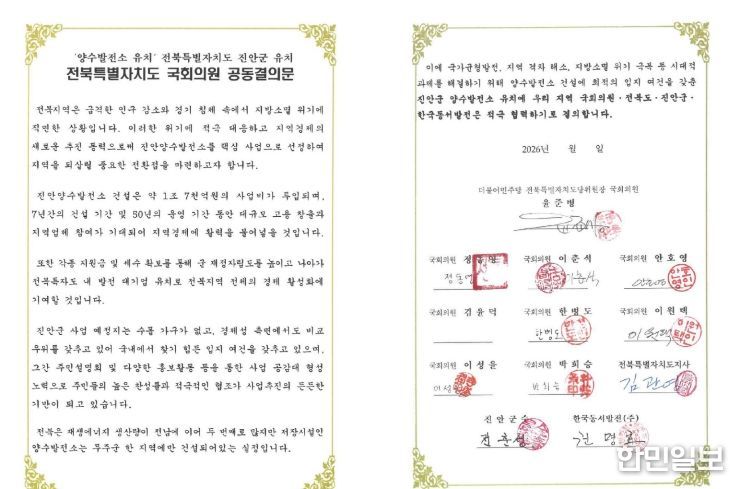 '양수발전소 유치' 전북특별자치도 진안군 유치
전북특별자치도 국회의원 공동결의문
전북지역은 급격한 인구 감소와 경기 침체 속에서 지방소멸 위기에
직면한 상황입니다. 이러한 위기에 적극 대응하고 지역경제의
새로운 추진 동력으로써 진안양수발전소를 핵심 사업으로 선정하여
지역을 되살릴 중요한 전환점을 마련하고자 합니다.
진안양수발전소 건설은 약 1조 7천억원의 사업비가 투입되며,
7년간의 건설 기간 및 50년의 운영 기간 동안 대규모 고용 창출과
지역업체 참여가 기대되어 지역경제에 활력을 불어넣을 것입니다.
또한 각종 지원금 및 세수 확보를 통해 군 재정자립도를 높이고 나아가
전북특자도 내 발전 대기업 유치로 전북지역 전체의 경제 활성화에
기여할 것입니다.
진안군 사업 예정지는 수몰 가구가 없고, 경제성 측면에서도 비교
우위를 갖추고 있어 국내에서 찾기 힘든 입지 여건을 갖추고 있으며,
그간 주민설명회 및 다양한 홍보활동 등을 통한 사업 공감대 형성
노력으로 주민들의 높은 찬성률과 적극적인 협조가 사업추진의 든든한
기반이 되고 있습니다.
전북은 재생에너지 생산량이 전남에 이어 두 번째로 많지만 저장시설인
양수발전소는 무주군 한 지역에만 건설되어있는 실정입니다.
이에 국가균형발전, 지역 격차 해소, 지방소멸 위기 극복 등 시대적
과제를 해결하기 위해 양수발전소 건설에 최적의 입지 여건을 갖춘
진안군 양수발전소 유치에 우리 지역 국회의원·전북도·진안군·
한국동서발전은 적극 협력하기로 결의합니다.
2026년 월 일
더불어민주당 전북특별자치도당위원장 국회의원
윤준병
국회의원 정동영 국회의원 이춘석 국회의원 안호영
정동영
국회의원 김윤덕 국회의원 한병도 국회의원 이원택
한병도 이원택
국회의원 이성윤 국회의원 박희승 전북특별자치도지사
이성윤 박희승 김관영
진안군수 한국동서발전(주)
전춘성 권명호
한민일보